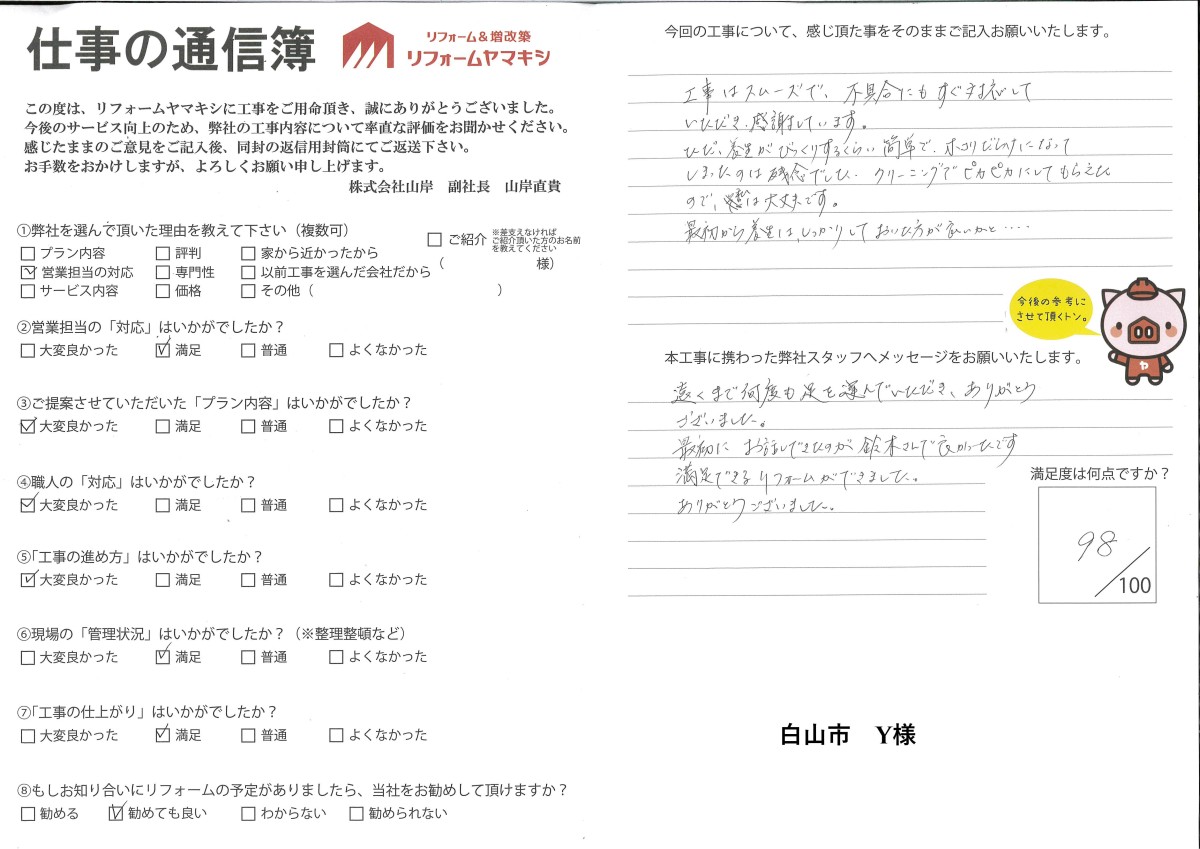 仕事の通信簿
リフォーム&増改築
リフォームヤマキシ
この度は、リフォームヤマキシに工事をご用命頂き、誠にありがとうございました。
今後のサービス向上のため、弊社の工事内容について率直な評価をお聞かせください。
感じたままのご意見をご記入後、同封の返信用封筒にてご返送下さい。
お手数をおかけしますが、よろしくお願い申し上げます。
株式会社山岸 副社長 山岸直貴
①弊社を選んで頂いた理由を教えて下さい(複数可)
□プラン内容 □評判 □家から近かったから
☑営業担当の対応 □専門性 □以前工事を選んだ会社だから
□サービス内容 □価格 □その他( )
□ご紹介 ※差支えなければ
ご紹介頂いた方のお名前
を教えてください
( 様)
②営業担当の「対応」はいかがでしたか?
□大変良かった ☑満足 □普通 □よくなかった
③ご提案させていただいた「プラン内容」はいかがでしたか?
☑大変良かった □満足 □普通 □よくなかった
④職人の「対応」はいかがでしたか?
☑大変良かった □満足 □普通 □よくなかった
⑤「工事の進め方」はいかがでしたか?
☑大変良かった □満足 □普通 □よくなかった
⑥現場の「管理状況」はいかがでしたか?(※整理整頓など)
□大変良かった ☑満足 □普通 □よくなかった
⑦「工事の仕上がり」はいかがでしたか?
□大変良かった ☑満足 □普通 □よくなかった
⑧もしお知り合いにリフォームの予定がありましたら、当社をお勧めして頂けますか?
□勧める ☑勧めても良い □わからない □勧められない
今回の工事について、感じ頂た事をそのままご記入お願いいたします。
工事はスムーズで、不具合にもすぐ対応して
いただき、感謝しています。
ただ、養生がびっくりするくらい簡単で、ホコリだらけになって
しまったのは残念でした。クリーニングでピカピカにしてもらえた
ので、は大丈夫です。
最初から養生は、しっかりしておいた方が良いかと‥‥‥
今後の参考に
させて頂くトン。
ヤ
本工事に携わった弊社スタッフへメッセージをお願いいたします。
遠くまで何度も足を運んでいただき、ありがとう
ございました。
最初にお話しできたのが鈴木さんで良かったです
満足できるリフォームができました。
ありがとうございました。
満足度は何点ですか?
98
/100
白山市 Y様